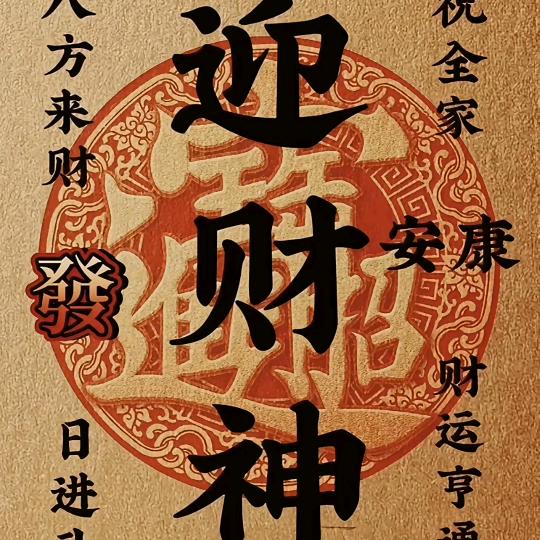 迎财神
祝全家
安康
财运亨通
八方来财
發
日进
招財進寶